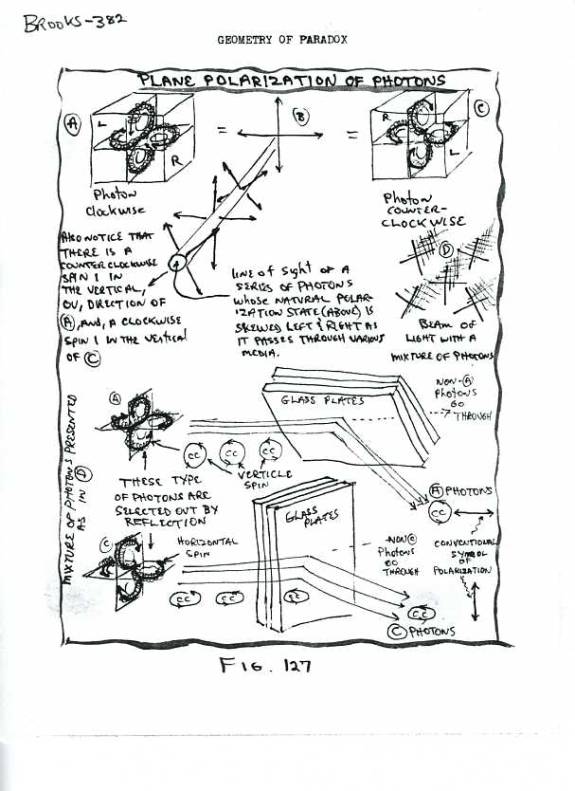 BROOKS-382
GEOMETRY OF PARADOX
PLANE POLARIZATION OF PHOTONS
A
L
R
Photon
Clockwise
=
B
=
C
R
L
Photon
COUNTER-
CLOCKWISE
ALSO NOTICE THAT
THERE IS A
COUNTER CLOCKWISE
SPIN 1 IN
THE VERTICAL,
OV, DIRECTION OF
A, AND, A CLOCKWISE
SPIN 1 IN THE VERTICAL
OF C
LINE OF SIGHT OF A
SERIES OF PHOTONS
WHOSE NATURAL POLAR-
IZATION STATE (ABOVE) IS
SKEWED LEFT & RIGHT AS
IT PASSES THROUGH VARIOUS
MEDIA.
D
BEAM OF
LIGHT WITH A
MIXTURE OF PHOTONS
MIXTURE OF PHOTONS PRESENTED
AS IN D
A
GLASS PLATES
NON-A
Photons
GO
THROUGH
CC
CC
CC
VERTICLE
SPIN
THESE TYPE
OF PHOTONS ARE
SELECTED OUT BY
REFLECTION
A PHOTONS
CC
CONVENTIONAL
SYMBOL
OF
POLARIZATION
C
HORIZONTAL
SPIN
GLASS
PLATES
NON C
Photons
GO
THROUGH
CC
CC
CC
CC
C PHOTONS
FIG. 127